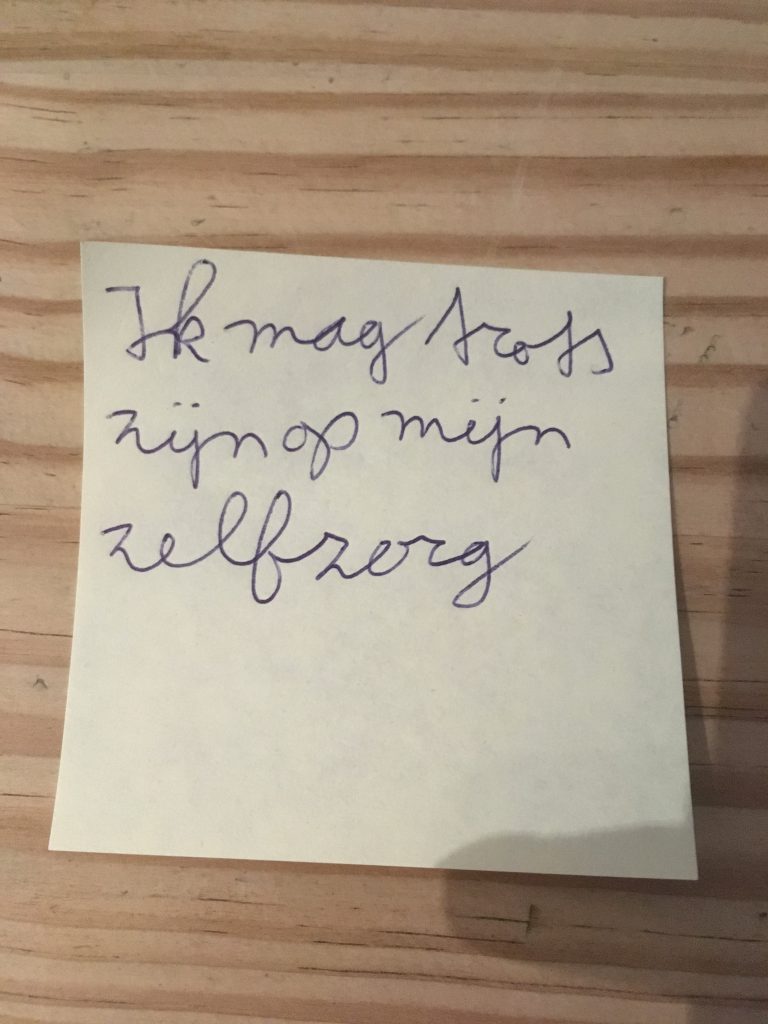 Ik mag trots
zijn op mijn
zelfzorg